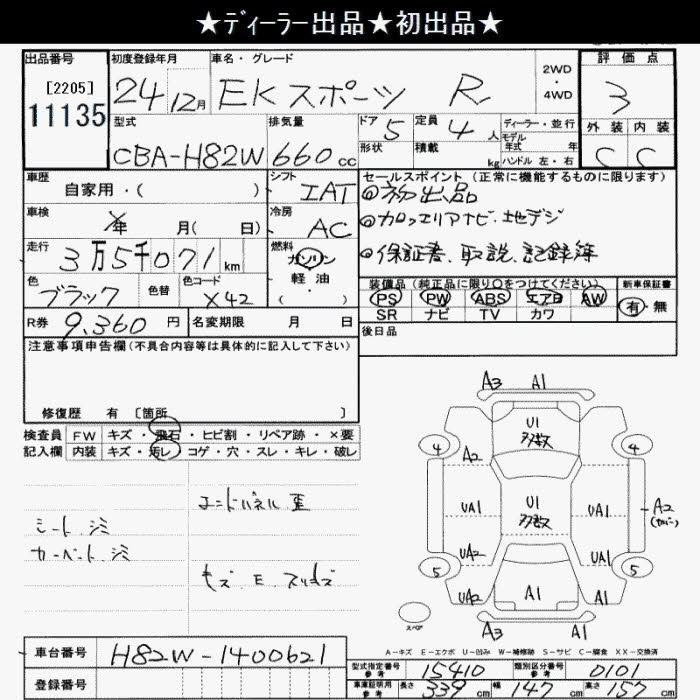 ★ディーラー出品★初出品★
出品番号 初度登録年月 車名・グレード 2WD・4WD 評価点
[2205] 11135 24 12月 EKスポーツ R 3
型式 排気量 ドア 5 定員 4人 ディーラー・並行 外装 内装
CBA-H82W 660cc 形状 積載 kg モデル年式 年 ハンドル 左・右 C C
車歴 自家用・( ) シフト IAT セールスポイント(正常に機能するものに限ります)
◎初出品
車検 年 月( 日) 冷房 AC ◎カロッエリアナビ.地デジ
走行 3万5千071km 燃料 ガソリン・軽油・( ) ◎保証書、取説、記録簿
色 ブラック 色替 色コード X42 装備品(純正品に限り○をつけてください) 新車保証書
PS PW ABS エアB AW 有・無
R券 9,360円 名変期限 月 日 SR ナビ TV カワ
注意事項申告欄(不具合内容等は具体的に記入して下さい) 後日品
修復歴 有 〔箇所 〕
検査員記入欄 FW キズ・飛石・ヒビ割・リペア跡・×要
内装 キズ・汚レ・コゲ・穴・スレ・キレ・破レ
シート.ジミ
カーペット.ジミ
A3 A1
U1 多数
4 4
A2
UA1 U1 多数 UA1 A2
UA2 UA1
5 5
UA2 A1 A1
スペア A3 A1
A-キズ E-エクボ U-凹み W-補修跡 S-サビ C-腐食 XX-交換済
車台番号 H82W-1400621
登録番号
型式指定番号 参考 15410 類別区分番号 参考 0101
車庫証明用 参考 長さ 339cm 幅 147cm 高さ 157cm